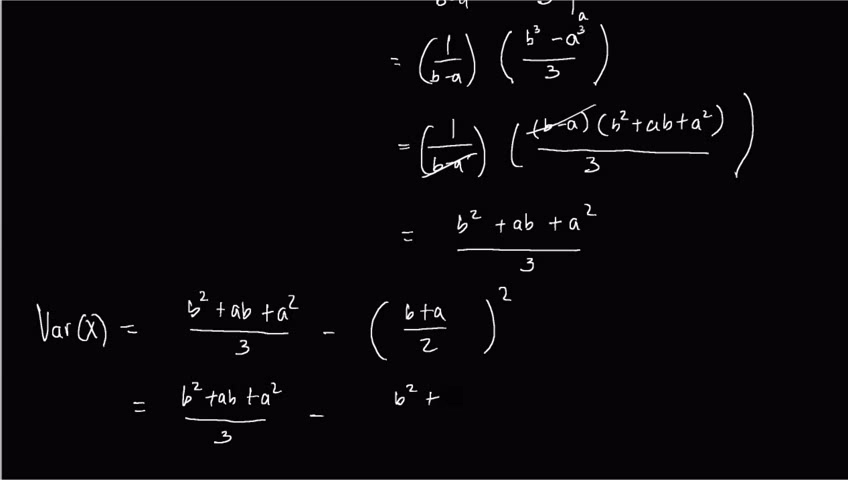 = (1/(b-a)) ((b³ - a³)/3)
= (1/(b-a)) ((b-a)(b² + ab + a²)/3)
= (b² + ab + a²)/3
Var(X) = (b² + ab + a²)/3 - ((b+a)/2)²
= (b² + ab + a²)/3 - b² +